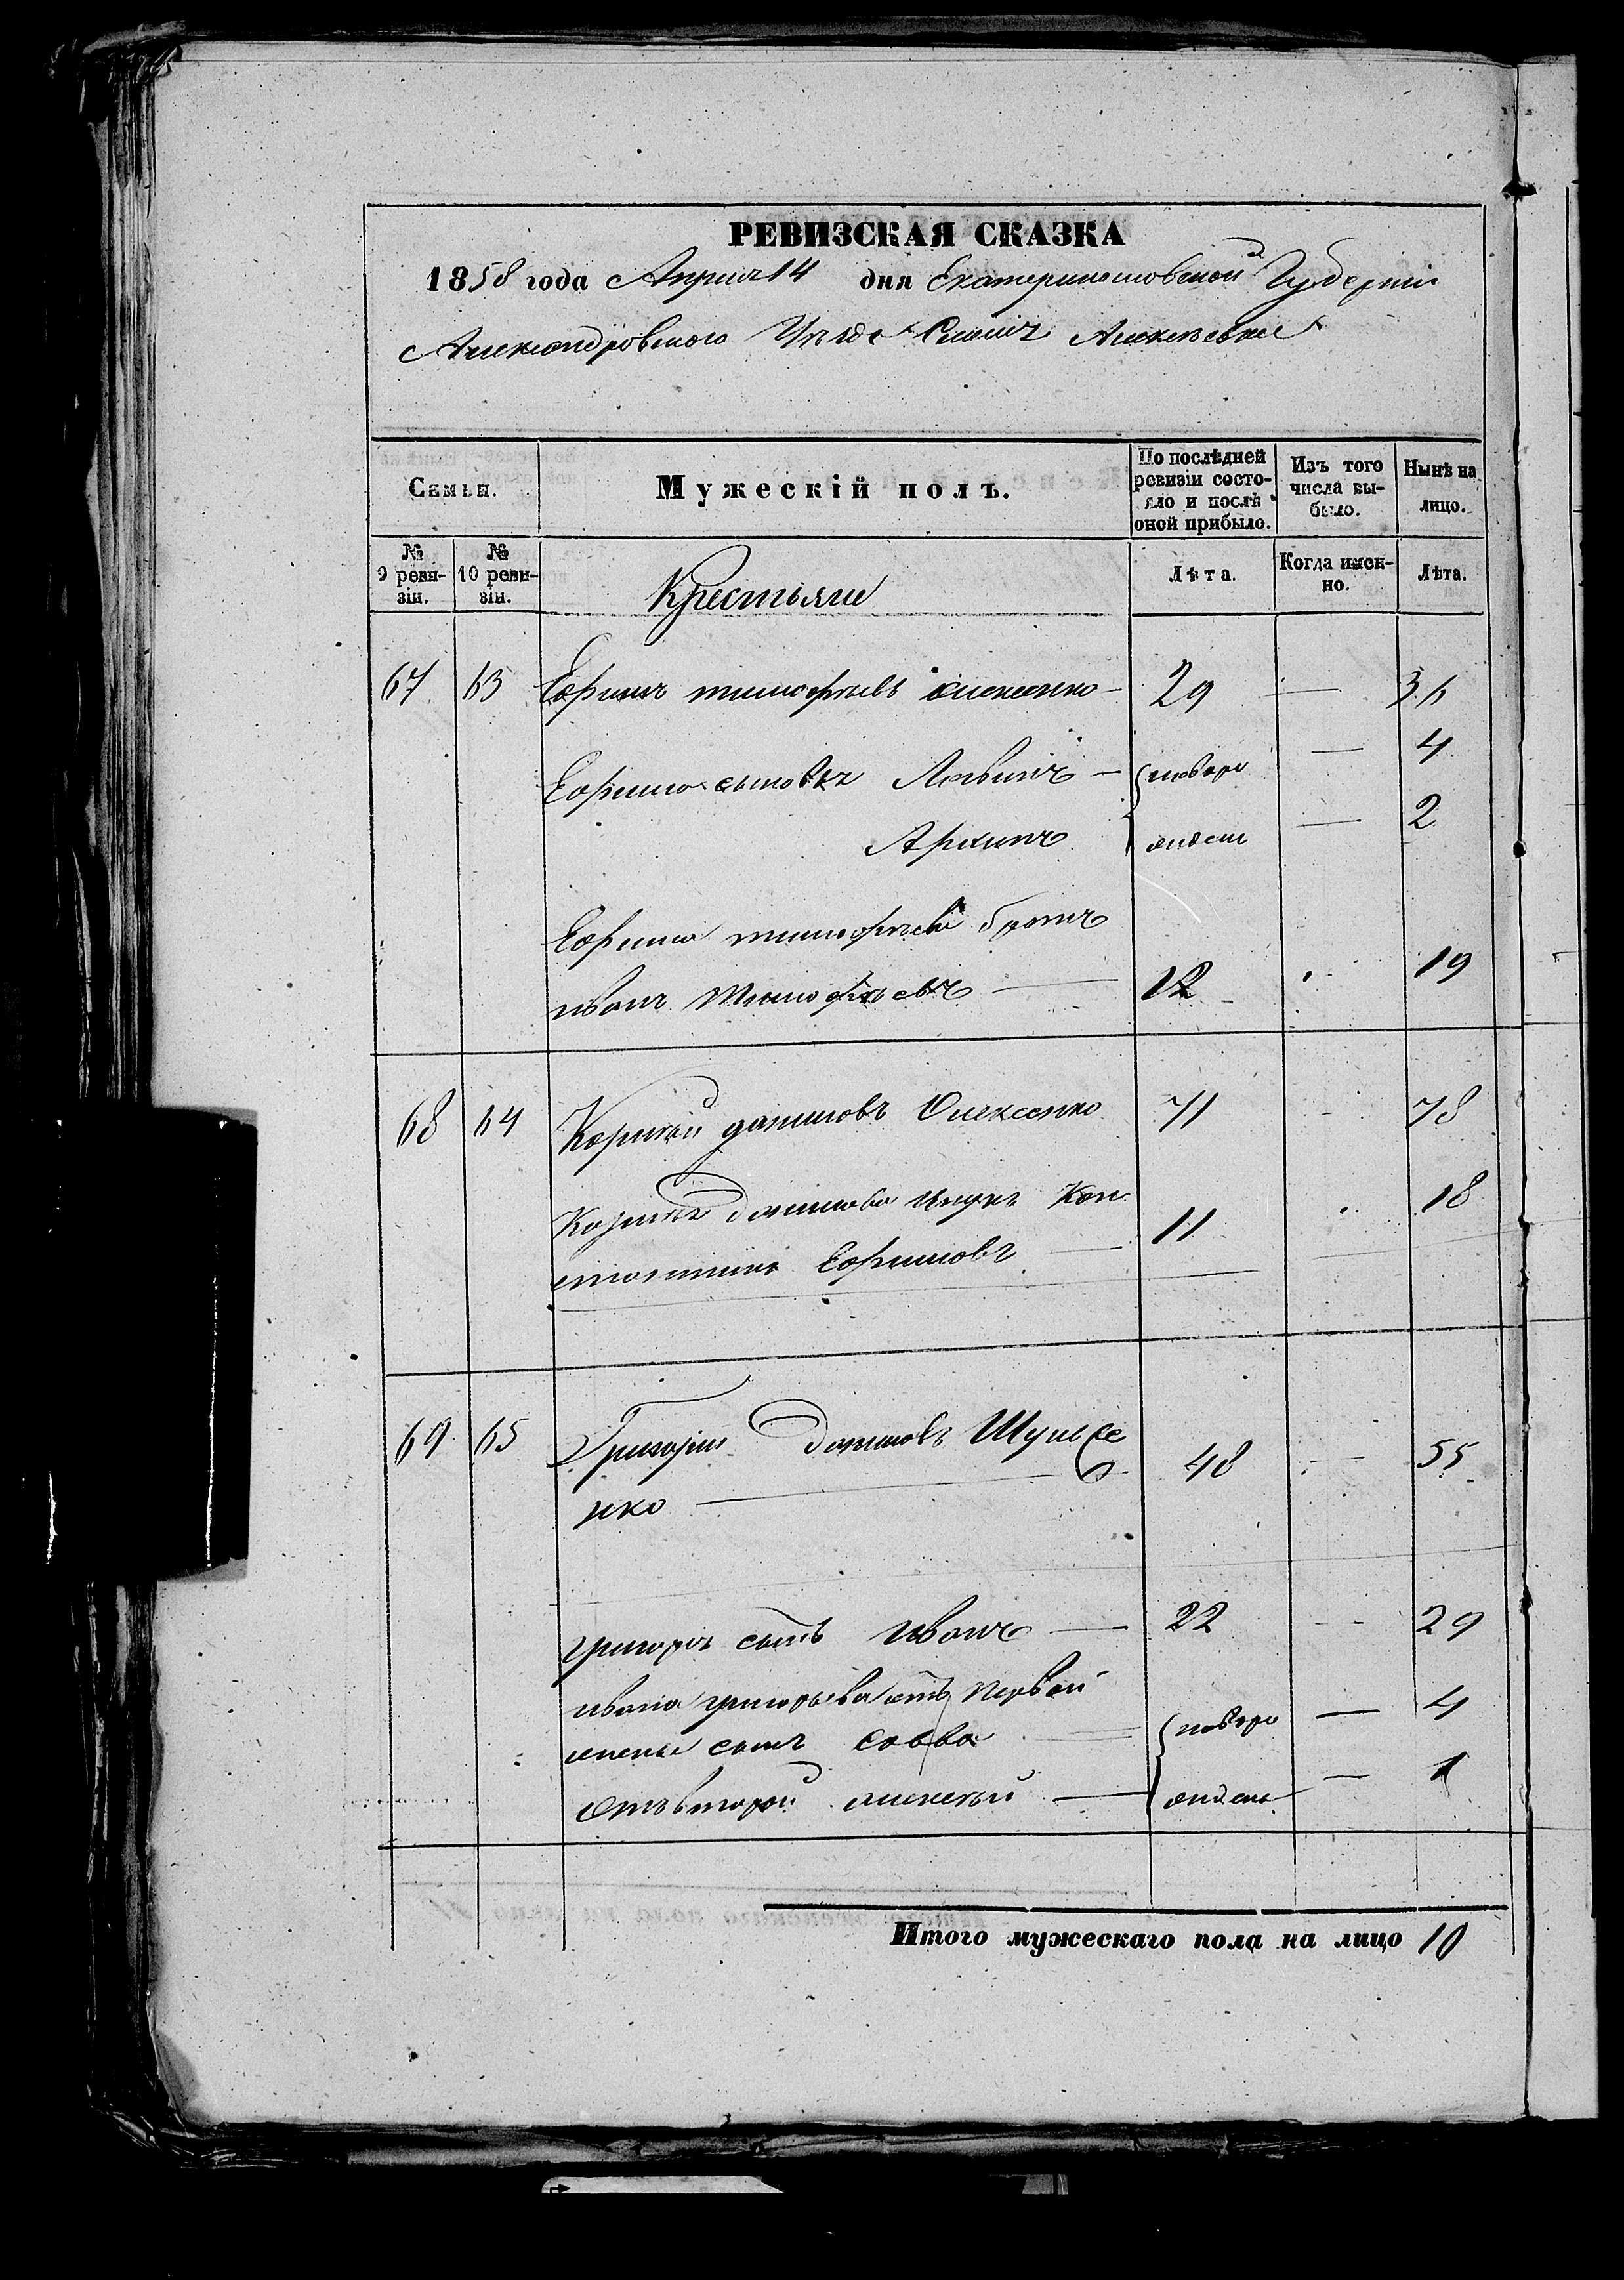 РЕВИЗСКАЯ СКАЗКА
1858 года Апреля 14 дня Екатеринославской Губернии
Александровского Уезда Алексеевка
Семьи. Мужескій полъ. По послѣдней ревизіи состояло и послѣ оной прибыло. Изъ того числа выбыло. Нынѣ на лицо.
№ 9 ревизіи. № 10 ревизіи. Крестьяне Лѣта. Когда именно. Лѣта.
67 63 Ефимъ тимофѣевъ алексенко — 29 — 36
Ефима сыновья Логвинъ — новоро — 4
Архипъ ждены — 2
Ефима тимофѣева братъ
иванъ тимофѣевъ — 12 19
68 64 Корнѣй даниловъ Олексенко 71 78
Корнѣя данилова внукъ Кон
стантинъ Ефимовъ — 11 18
69 65 Григорій даниловъ Шульже
нко — 48 — 55
григорія сынъ Иванъ — 22 — 29
ивана григорьева отъ первой
жены сынъ савва новоро — 4
Отъ второй алексѣй — ждены — 1
Итого мужескаго пола на лицо 10